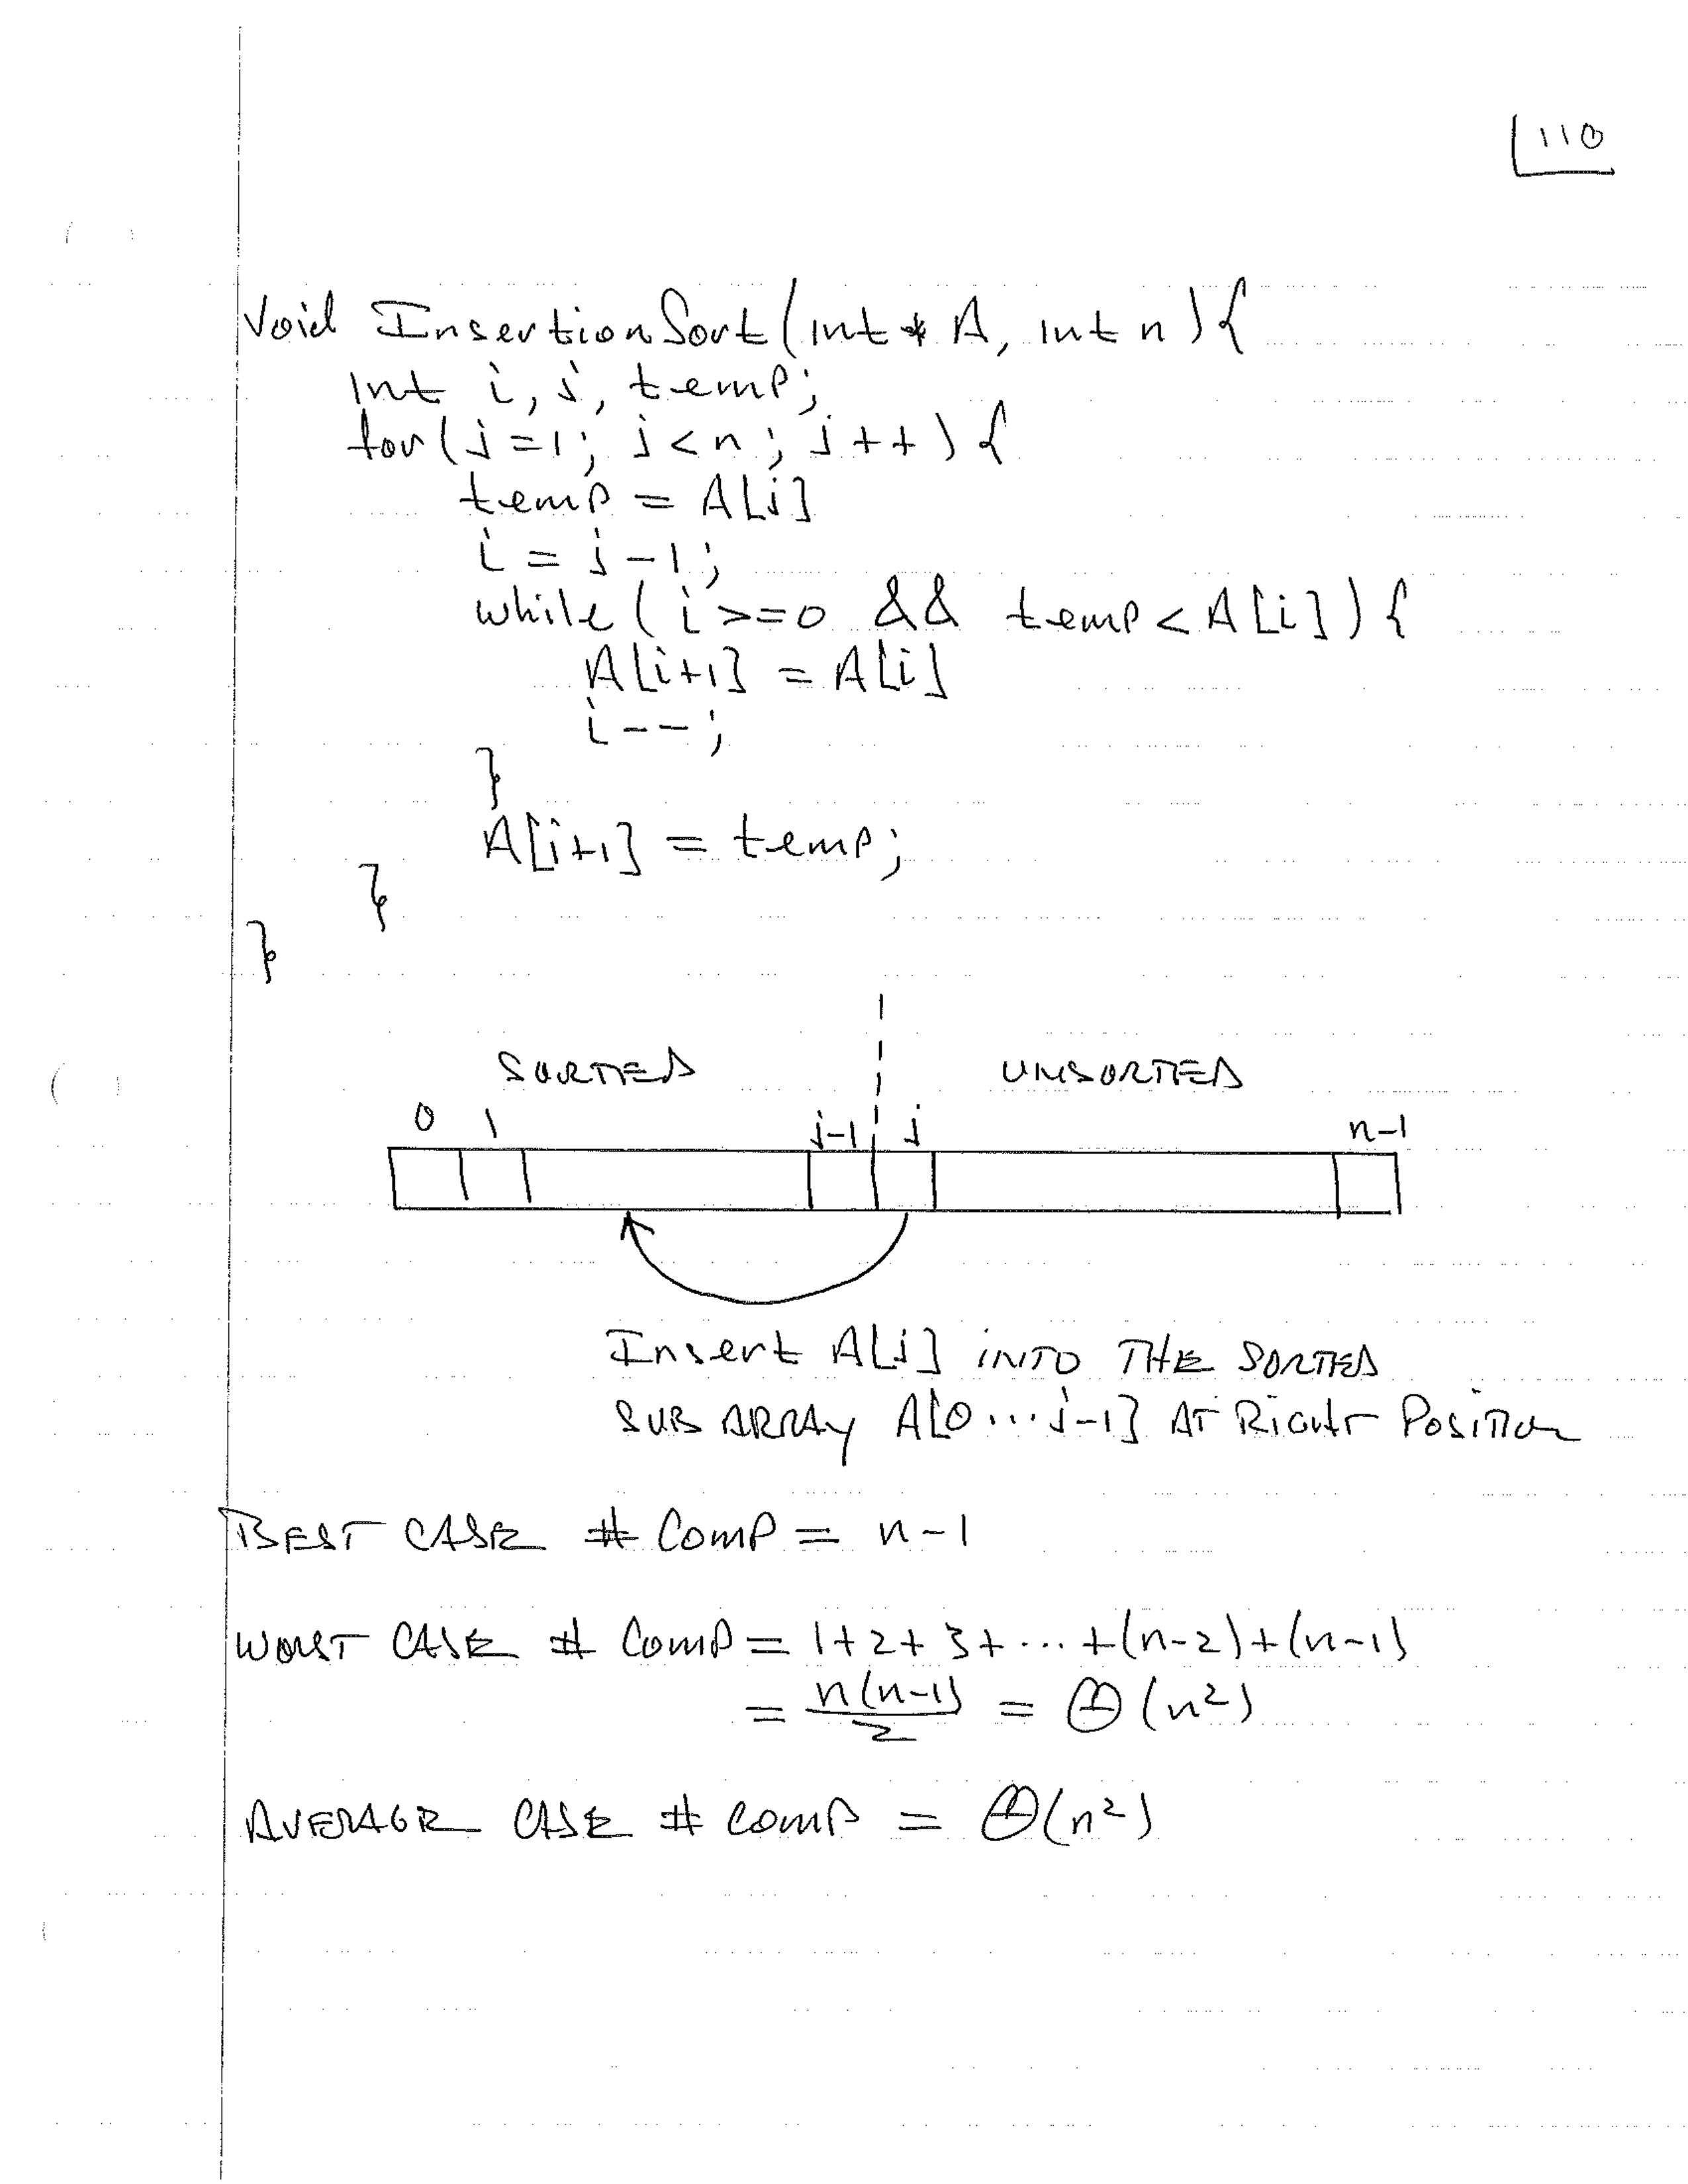 110
Void InsertionSort(int* A, int n){
int i, j, temp;
for(j=1; j<n; j++){
temp = A[j]
i = j-1;
while(i>=0 && temp<A[i]){
A[i+1] = A[i]
i--;
}
A[i+1] = temp;
}
}
SORTED UNSORTED
0 1 j-1 j n-1
Insert A[j] INTO THE SORTED
SUB ARRAY A[0...j-1] AT RIGHT POSITION
BEST CASE # COMP = n-1
WORST CASE # COMP = 1+2+3+...+(n-2)+(n-1)
= n(n-1)/2 = Θ(n²)
AVERAGE CASE # COMP = Θ(n²)